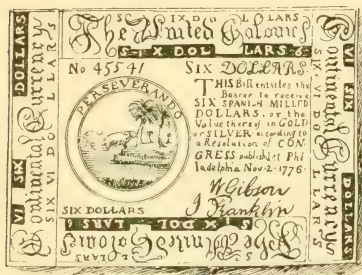 SIX DOLLARS
The United Colonies
SIX DOLLARS 6
No 45541 SIX DOLLARS.
THIS Bill entitles the
Bearer to receive
SIX SPANISH MILL'D
DOLLARS, or the
Value thereof in GOLD
or SILVER according to
a Resolution of CON
GRESS publish't at Phi
ladelphia Nov-2-1776.
PERSEVERANDO
W Gibson
J Franklin
SIX DOLLARS
SIX DOLLARS
The United Colonies
DOLLARS SIX VI
Continental Currency
SIX VI DOLLARS
SIX VI DOLLARS
Continental Currency
VI SIX DOLLARS